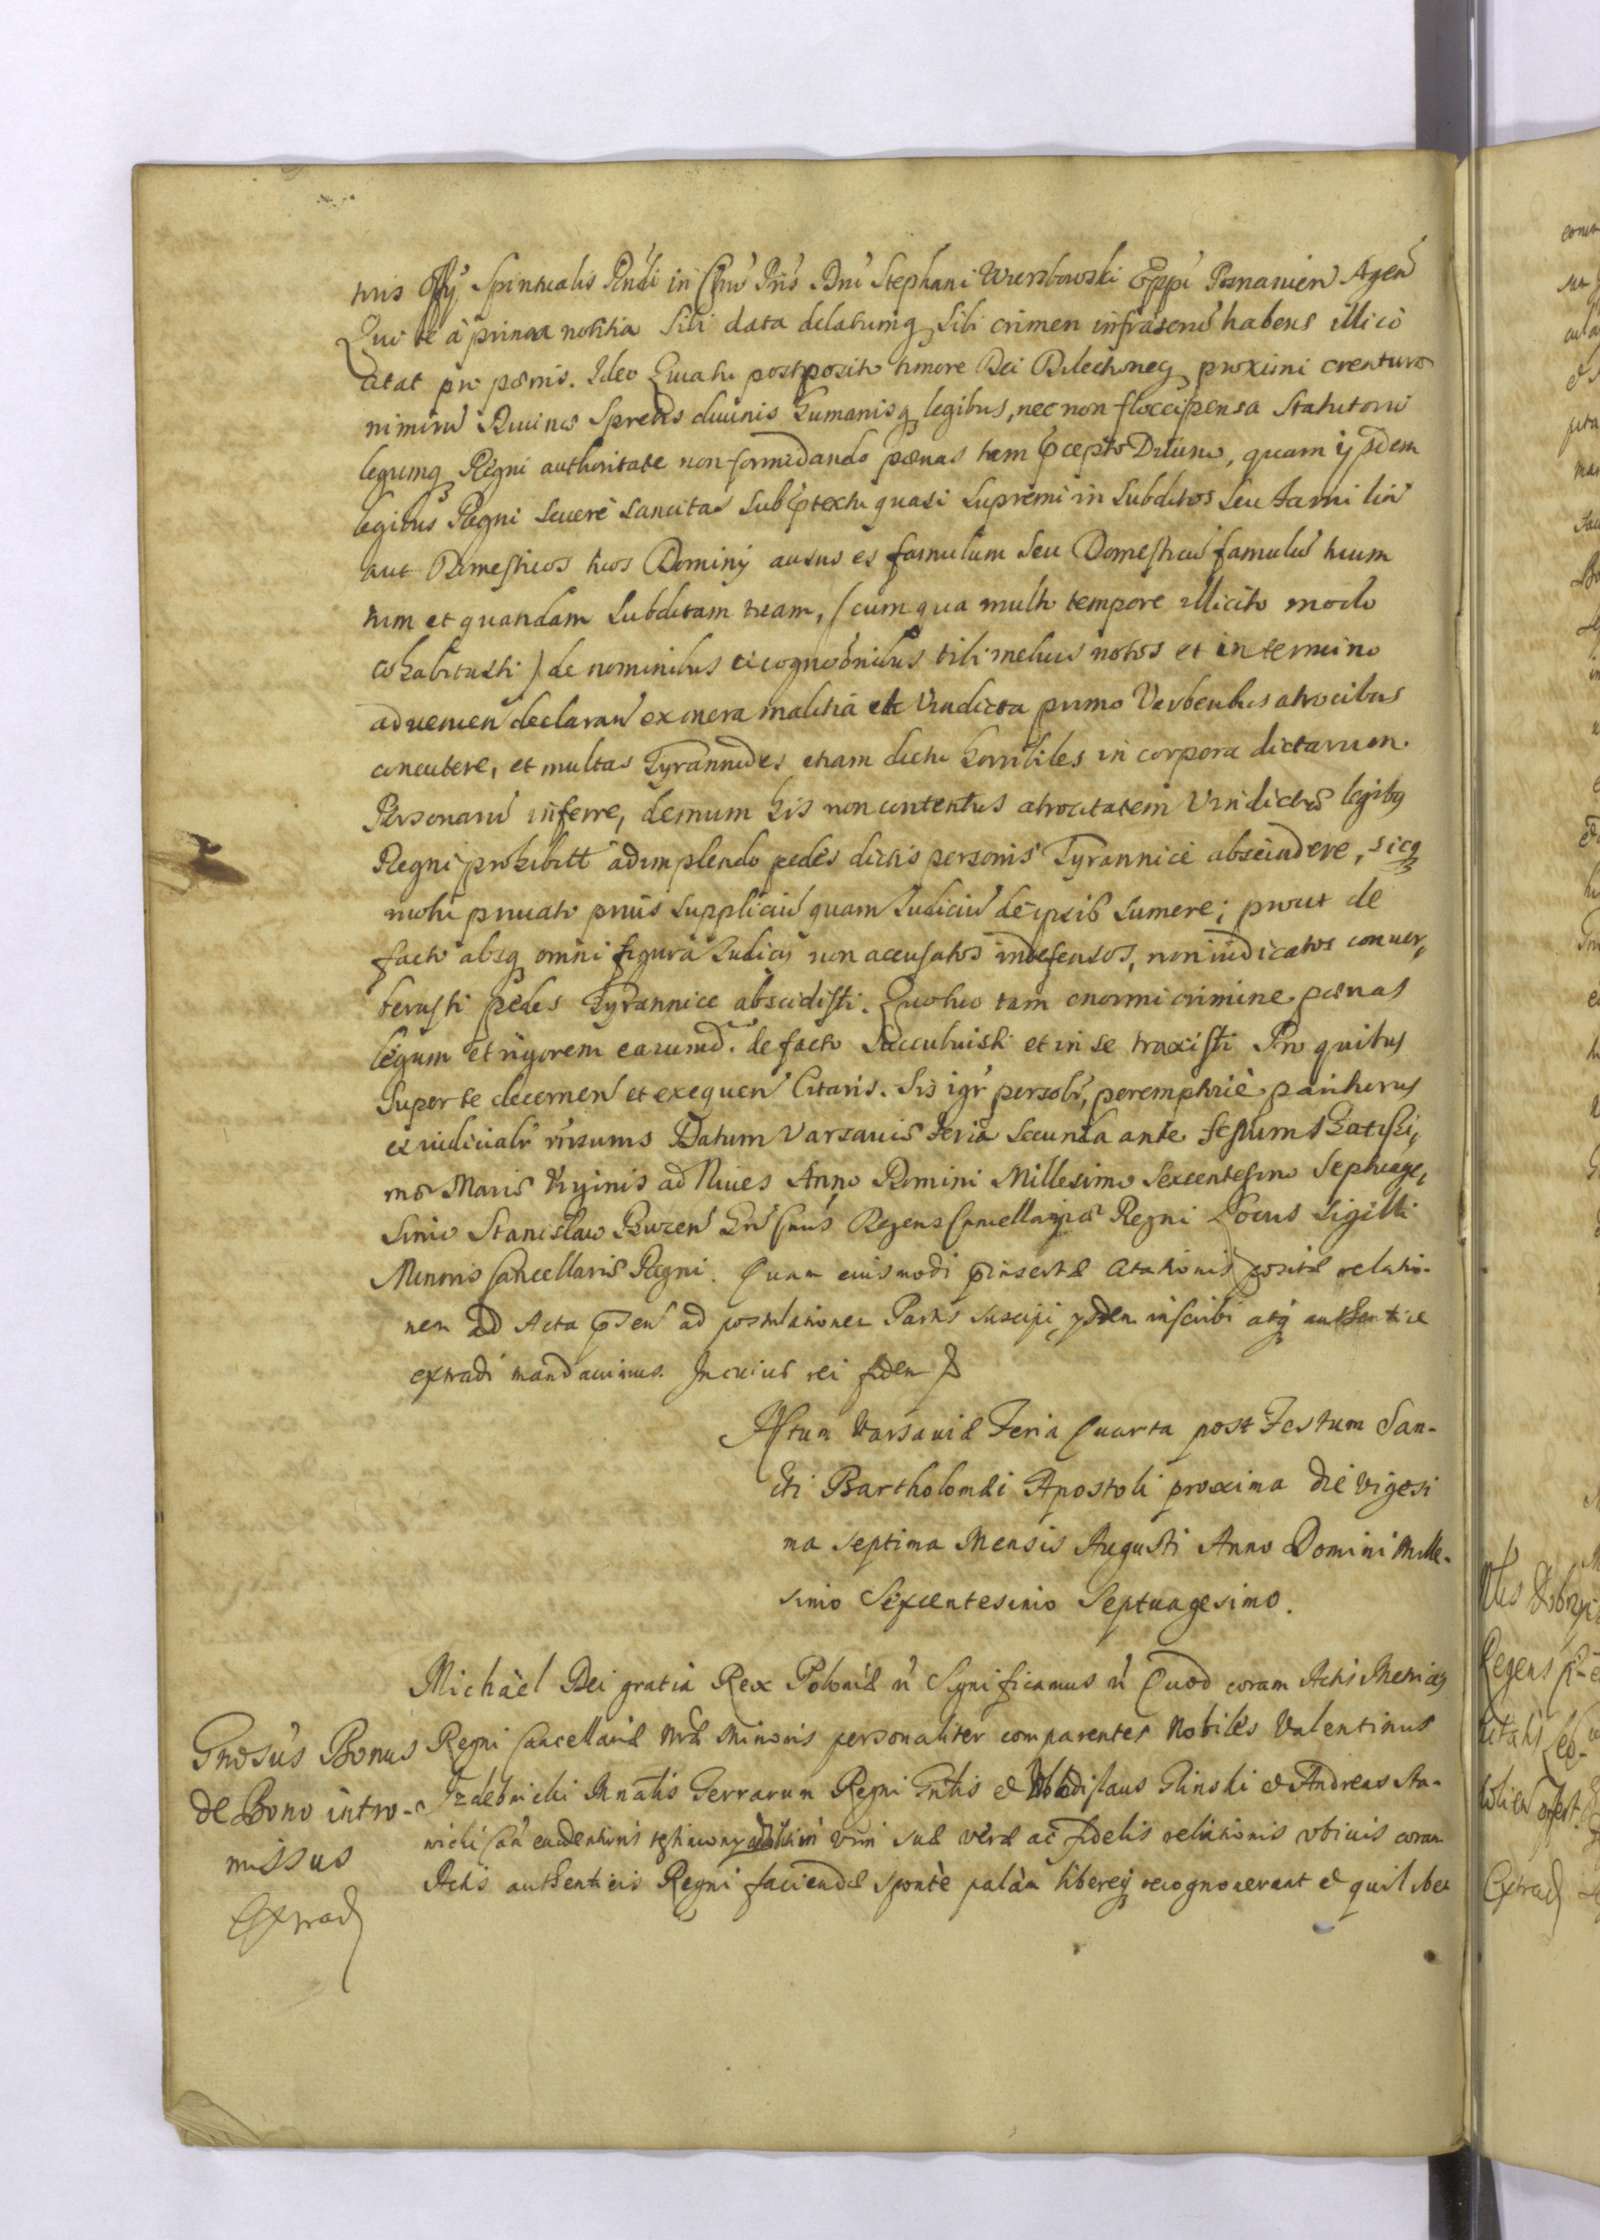 tuis Offÿ Spiritualis Rndi in Chro Pris Dni Stephani Wierzbowski Eppi Posnanien Agen
Qui te à prima notitia Sibi data delatumq sibi crimen infrascrm habens illico
citat pro pœnis. Ideo Quia tu postposito timore Dei Dilectioneq proximi creaturæ
nimirũ Divinæ Spretis divinis humanisq legibus, nec non floccipensa Statutorũ
legumq Regni authoritate non formidando pœnas tam Præcepto Divino, quam ijsdem
legibus Regni severè sancitas sub prætextu quasi supremi in subditos seu familiã
aut Domesticos tuos Dominij ausus es famulum seu Domesticũ famulũ tuum
tum et quandam Subditam tuam, (cum qua multo tempore illicito modo
cohabitasti) de nominibus et cognõinibus tibi melius notos et in termino
advenien declaran ex mera malitia et Vindicta primo Verberibus atrocibus
concutere, et multas Tyrannides etiam dictu horribiles in corpora dictarum
Personarũ inferre, demum his non contentus atrocitatem Vindictæ legibus
Regni prohibitt adimplendo pedes dictis personis Tyrannicè abscindere, sicq
motu privato prius suppliciũ quam Judiciũ de ipsis sumere; prout de
facto absq omni figura Judicij non accusatos indefensos, non iudicatos conver,
berasti pedes Tyrannice abscidisti. Quo tuo tam enormi crimine pœnas
legum et rigorem earumd. de facto succubuisti et in se traxisti Pro quibus
super te decernen et exequen Citaris. Sis igr persolr, peremptriè pariturus
et iudicialr rñsurus Datum Varsaviæ feria secunda ante festum Beatissi,
mæ Mariæ Virginis ad Nives Anno Domini Millesimo Sexcentesimo Septuage,
simo Stanislaw Buzen Regens Cancellariæ Regni Locus Sigilli
Minoris Cancellariæ Regni. Quam eiusmodi præinsertæ Citationis positæ relatio-
nem ad Acta præsen ad postulationem Partis suscipi, ijsdem inscribi atq authentice
extradi mandavimus. In cuius rei fidem
Actum Varsaviæ Feria Quarta post Festum San-
cti Bartholomæi Apostoli proxima die vigesi
ma septima Mensis Augusti Anno Domini Mille-
simo Sexcentesimo Septuagesimo.
Michaël Dei gratia Rex Poloniæ ñ Significamus ñ Quod coram Actis Metrices
Gnosus Bonus
de Bono intro-
missus
Extrad
Regni Cancellariæ nræ Minoris personaliter comparentes Nobiles Valentinus
Izdebnicki Mnalis Terrarum Regni Gnlis et Vladislaus Glinski et Andreas Sta-
nicki Cau evidentioris testimony vim suæ veræ ac fidelis relationis ubivis coram
Actis authenticis Regni faciendæ sponte palàm libereq recognoverunt et quilibet